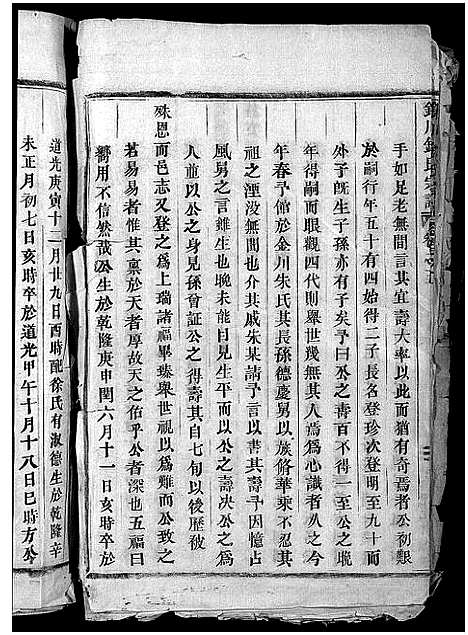 手如足老無間言其宜壽大率以此而猶有奇焉者公初艱
於嗣行年五十有四始得二子長名登珍次登明至九十而
外子旣生子孫亦有子矣予曰公之壽百不得一至公之晚
年得嗣而眼觀四代則舉世幾無其人焉心識者久之今
年春予館於金川朱氏其長孫德慶舅以族脩華乘不忍其
祖之湮没無聞也介其戚朱某請予言以書其壽予因憶占
風舅之言錐生也晚未能目見生平而以公之壽决公之爲
人並以公之身見孫曾証公之得壽其自七旬以後歷被
殊恩而邑志又登之爲上瑞諸福畢臻舉世視以爲難而公致之
若易易者惟其禀於天者厚故天之佑乎公者深也五福曰
嚮用不信然哉公生於乾隆庚申閏六月十一日亥時卒於
道光庚寅十二月廿九日酉時配徐氏有淑德生於乾隆辛
未正月初七日亥時卒於道光甲午十月十八日巳時方公